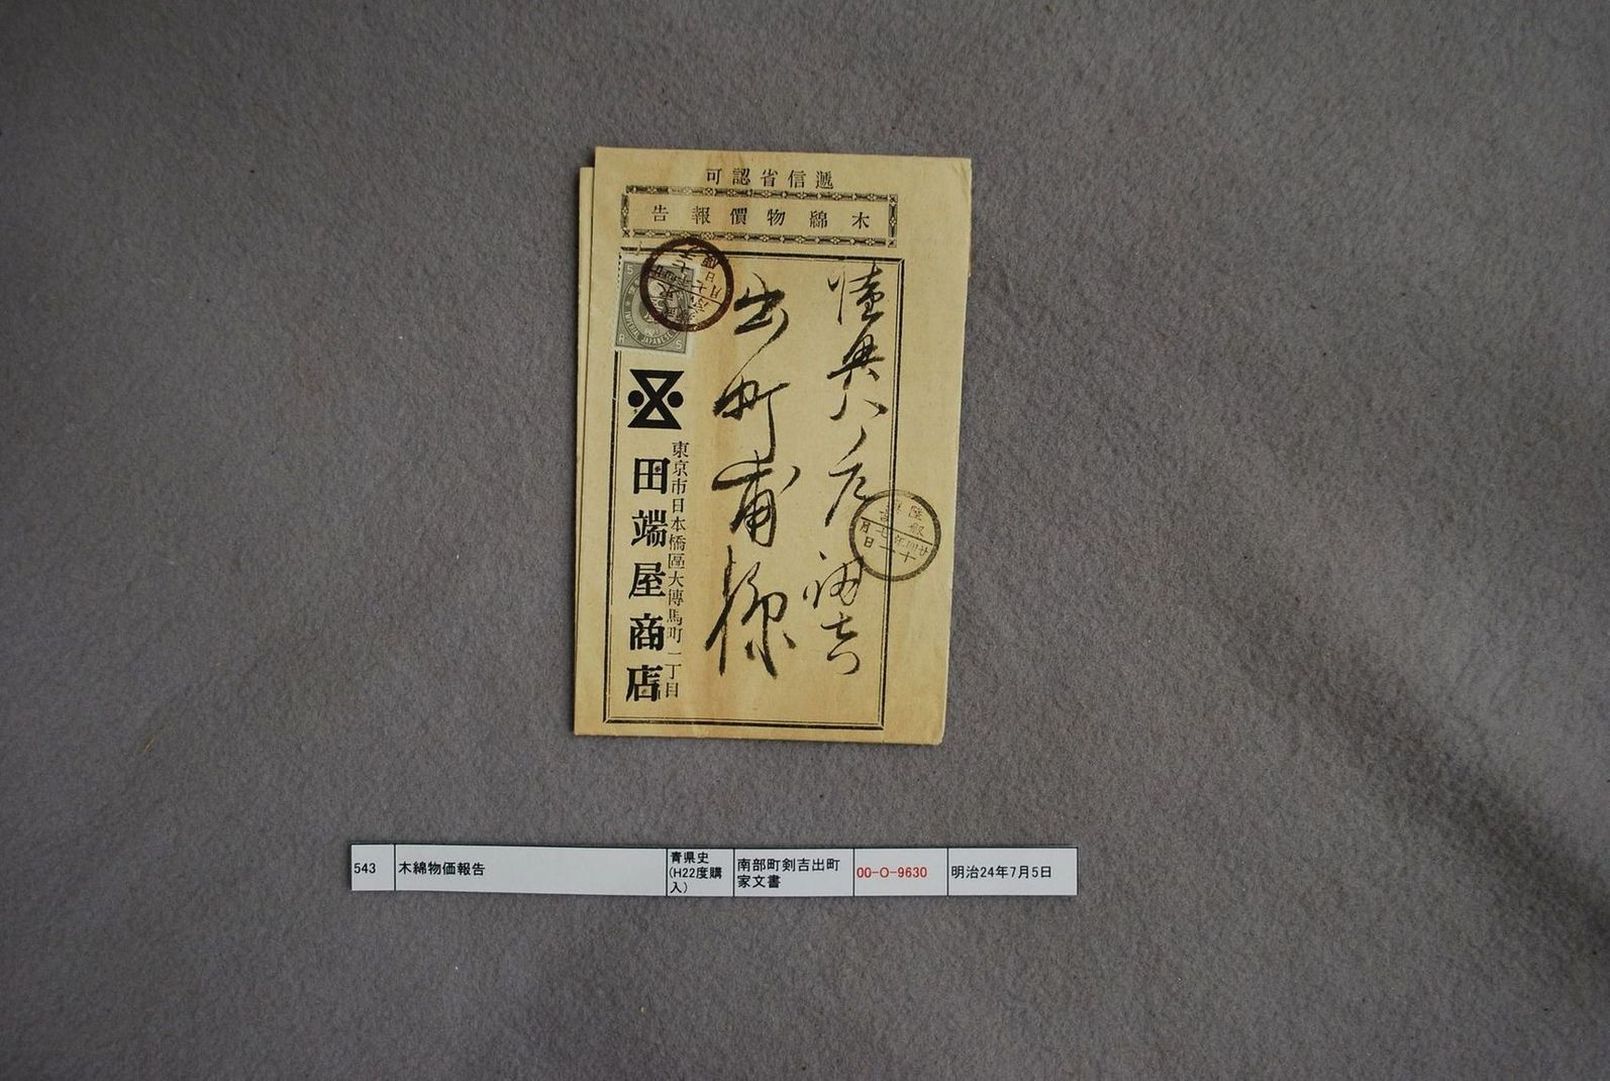 遞信省認可
木綿物價報告
陸奥八ノ戸
剣吉
出町甫様
東京市日本橋區大傳馬町一丁目
田端屋商店
5
5
R S
543
木綿物価報告
青県史
(H22度購
入)
南部町剣吉出町
家文書
00-O-9630
明治24年7月5日